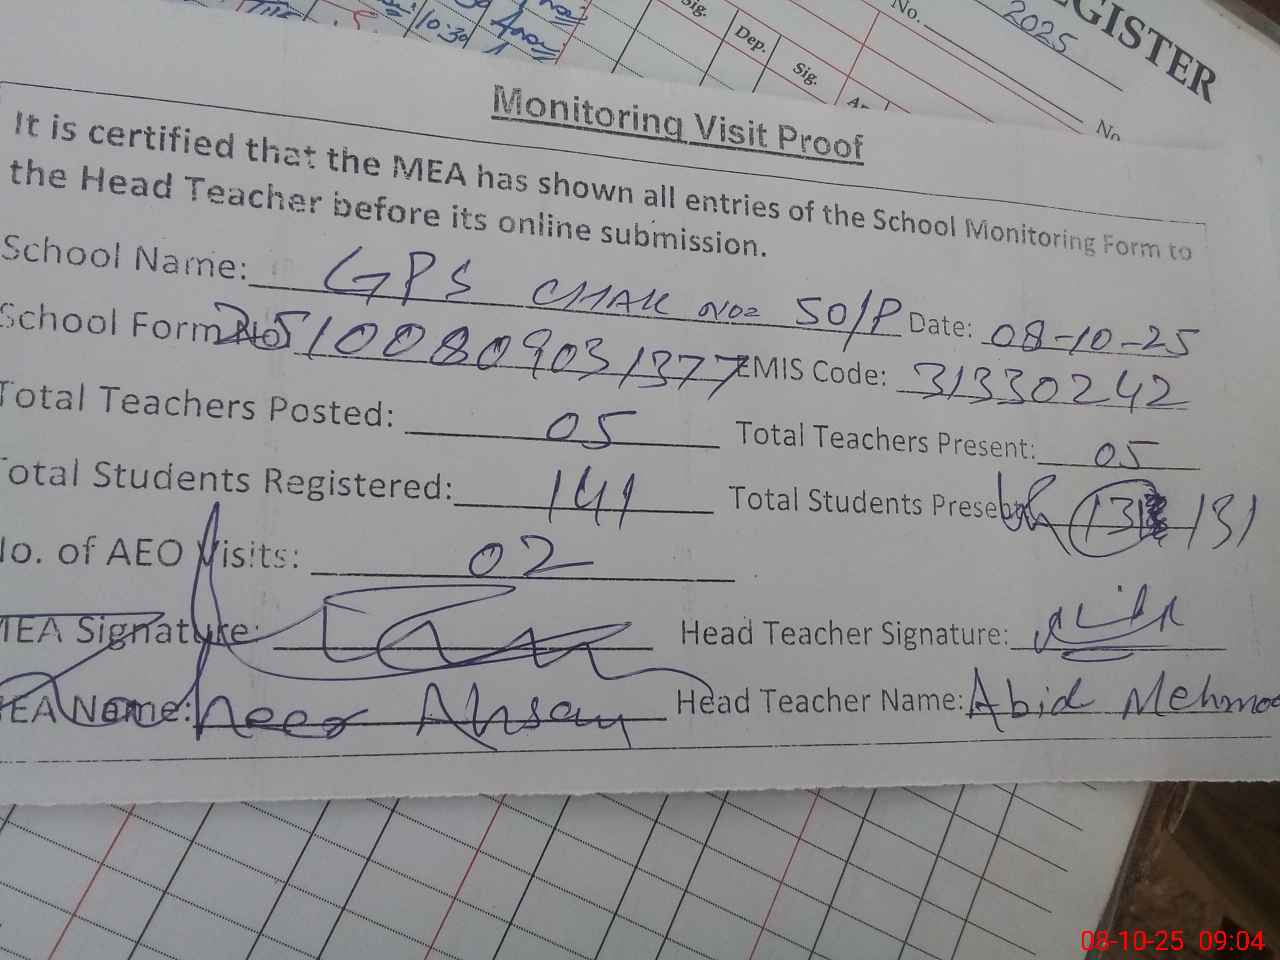 10:30
Sig.
Dep.
Sig.
No.
2025
REGISTER
No
Monitoring Visit Proof
It is certified that the MEA has shown all entries of the School Monitoring Form to
the Head Teacher before its online submission.
School Name: GPS CHAK NO2 50/P Date: 08-10-25
School Form No 25100809031377 EMIS Code: 31330242
Total Teachers Posted: 05 Total Teachers Present: 05
Total Students Registered: 141 Total Students Present 131 131
No. of AEO Visits: 02
MEA Signature: Head Teacher Signature:
MEA Name: Ahsan Head Teacher Name: Abid Mehmoo
08-10-25 09:04